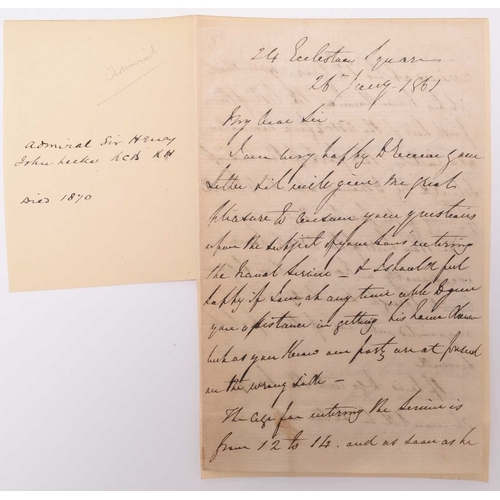 Admiral
Admiral Sir Henry
John Leeke KCB KH
Died 1870
24 Eccleston Square
26 Jany 1861
My dear Sir
I am very happy to receive your
Letter & it will give me great
pleasure to answer your questions
upon the subject of your Son's entering
the Naval Service – & I should feel
happy if I am, at any time able to give
you assistance in getting his name down
but as you know our party are at present
on the wrong side –
The age for entering the Service is
from 12 to 14. and as soon as he